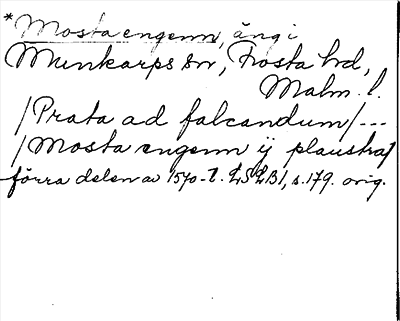 *Mosta engenn, äng i
Munkarps sn, Frosta hd,
Malm. l.
/Prata ad falcandum/---
/Mosta engenn ij plaustra/
förra delen av 1570-t. LSLB1, s.179. orig.